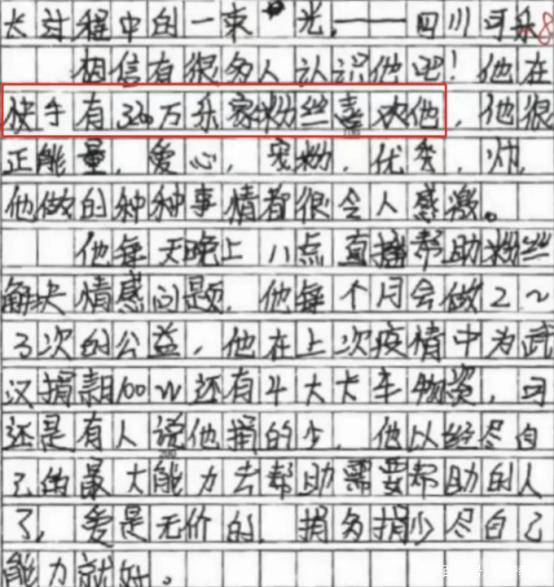 长过程中的一束光,——四川可乐
相信有很多人认识他吧!他在
快手有320万乐家粉丝喜欢他,他很
正能量,爱心,宠粉,优秀,帅,
他做的种种事情都很令人感激。
他每天晚上八点直播帮助粉丝
解决情感问题,他每个月会做2~
3次的公益,他在上次疫情中为武
汉捐款100w还有4大卡车物资,可
还是有人说他捐的少,他以经尽自
己的最大能力去帮助需要帮助的人
了,爱是无价的,捐多捐少尽自己
能力就好。